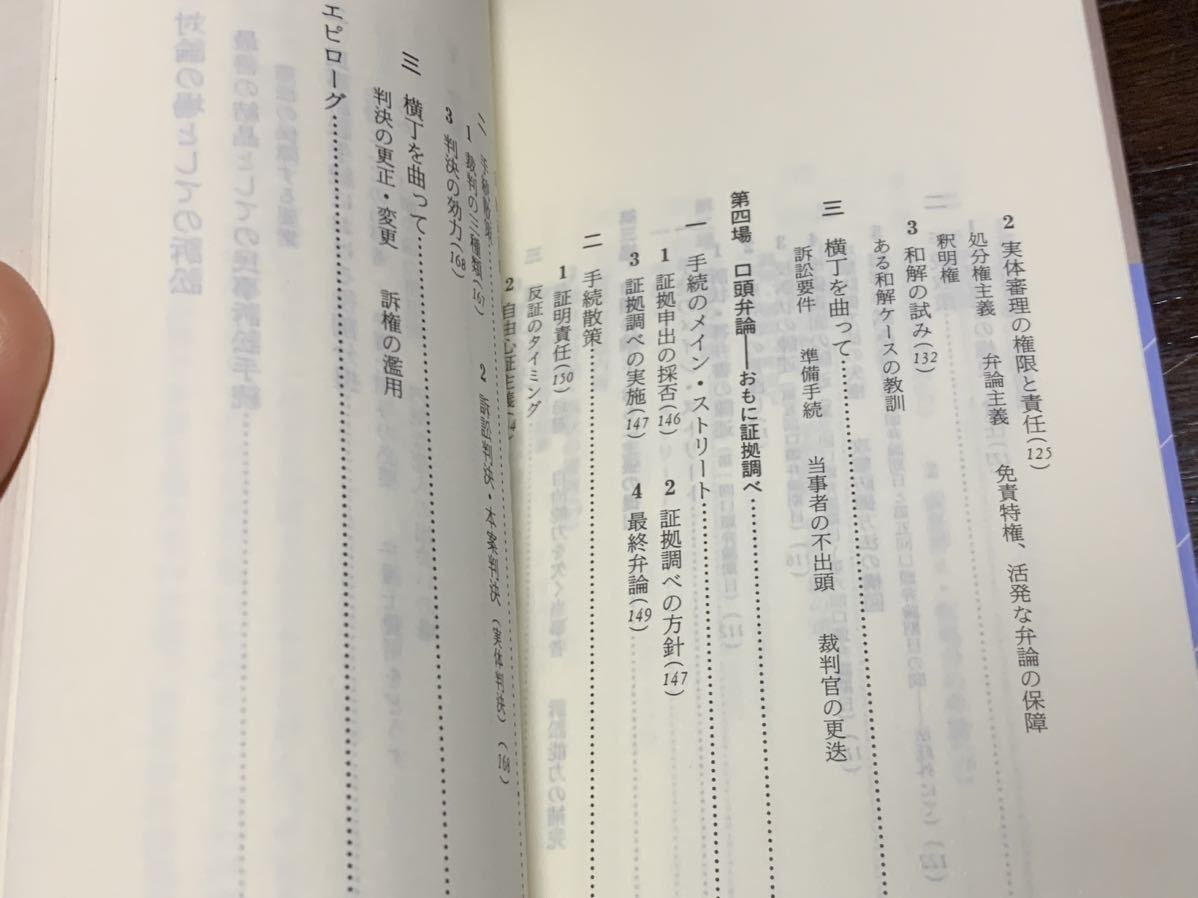 2 実体審理の権限と責任(125)
処分権主義 弁論主義 免責特権、活発な弁論の保障
釈明権
3 和解の試み(132)
ある和解ケースの教訓
三 横丁を曲って
訴訟要件 準備手続 当事者の不出頭 裁判官の更迭
第四場 口頭弁論――おもに証拠調べ
一 手続のメイン・ストリート
1 証拠申出の採否(146) 2 証拠調べの方針(147)
3 証拠調べの実施(147) 4 最終弁論(149)
二 手続散策
1 証明責任(150)
反証のタイミング
2 自由心証主義
二 手続散策
1 裁判の三種類(167) 2 訴訟判決・本案判決(実体判決)(168)
3 判決の効力(168)
三 横丁を曲って
判決の更正・変更 訴権の濫用
エピローグ